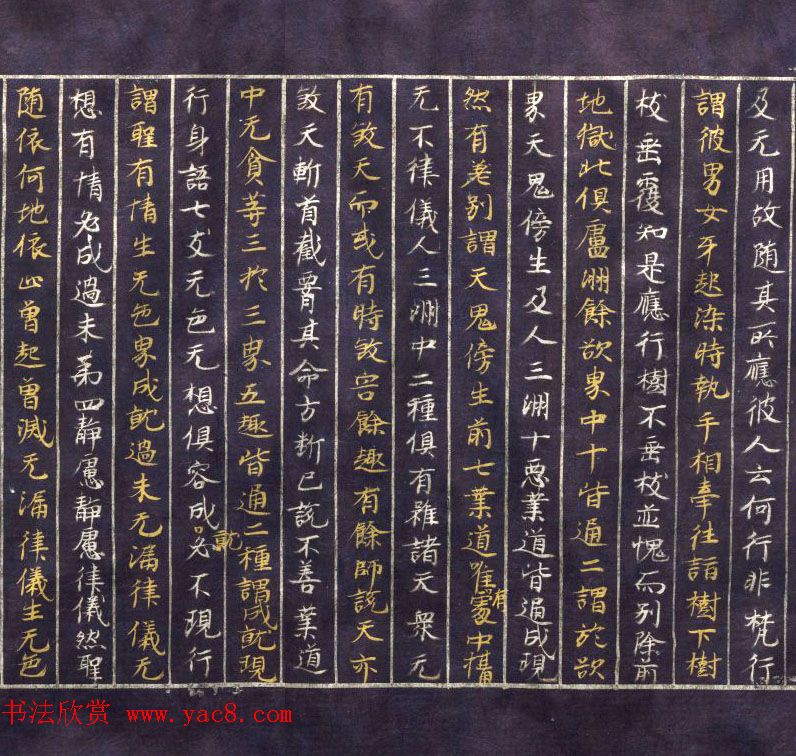 及无用故随其所應彼人云何行非梵行
謂彼男女牙起染時執手相牽往詣樹下樹
枝垂覆知是應行樹不垂枝並愧而别除前
地獄北俱盧洲餘欲界中十皆通二謂於欲
界天鬼傍生及人三洲十惡業道皆通成現
然有差别謂天鬼傍生前七業道唯有處中攝
无不律儀人三洲中二種俱有雖諸天衆无
有煞天而或有時煞害餘趣有餘師說天亦
煞天斬首截腰其命方断已說不善業道
中无貪等三於三界五趣皆通二種謂成就現
行身語七支无色无想俱容成就必不現行
謂聖有情生无色界成就過未无漏律儀无
想有情必成過未第四静慮静慮律儀然聖
随依何地依止曾起曾滅无漏律儀生无色
书法欣赏 www.yac8.com